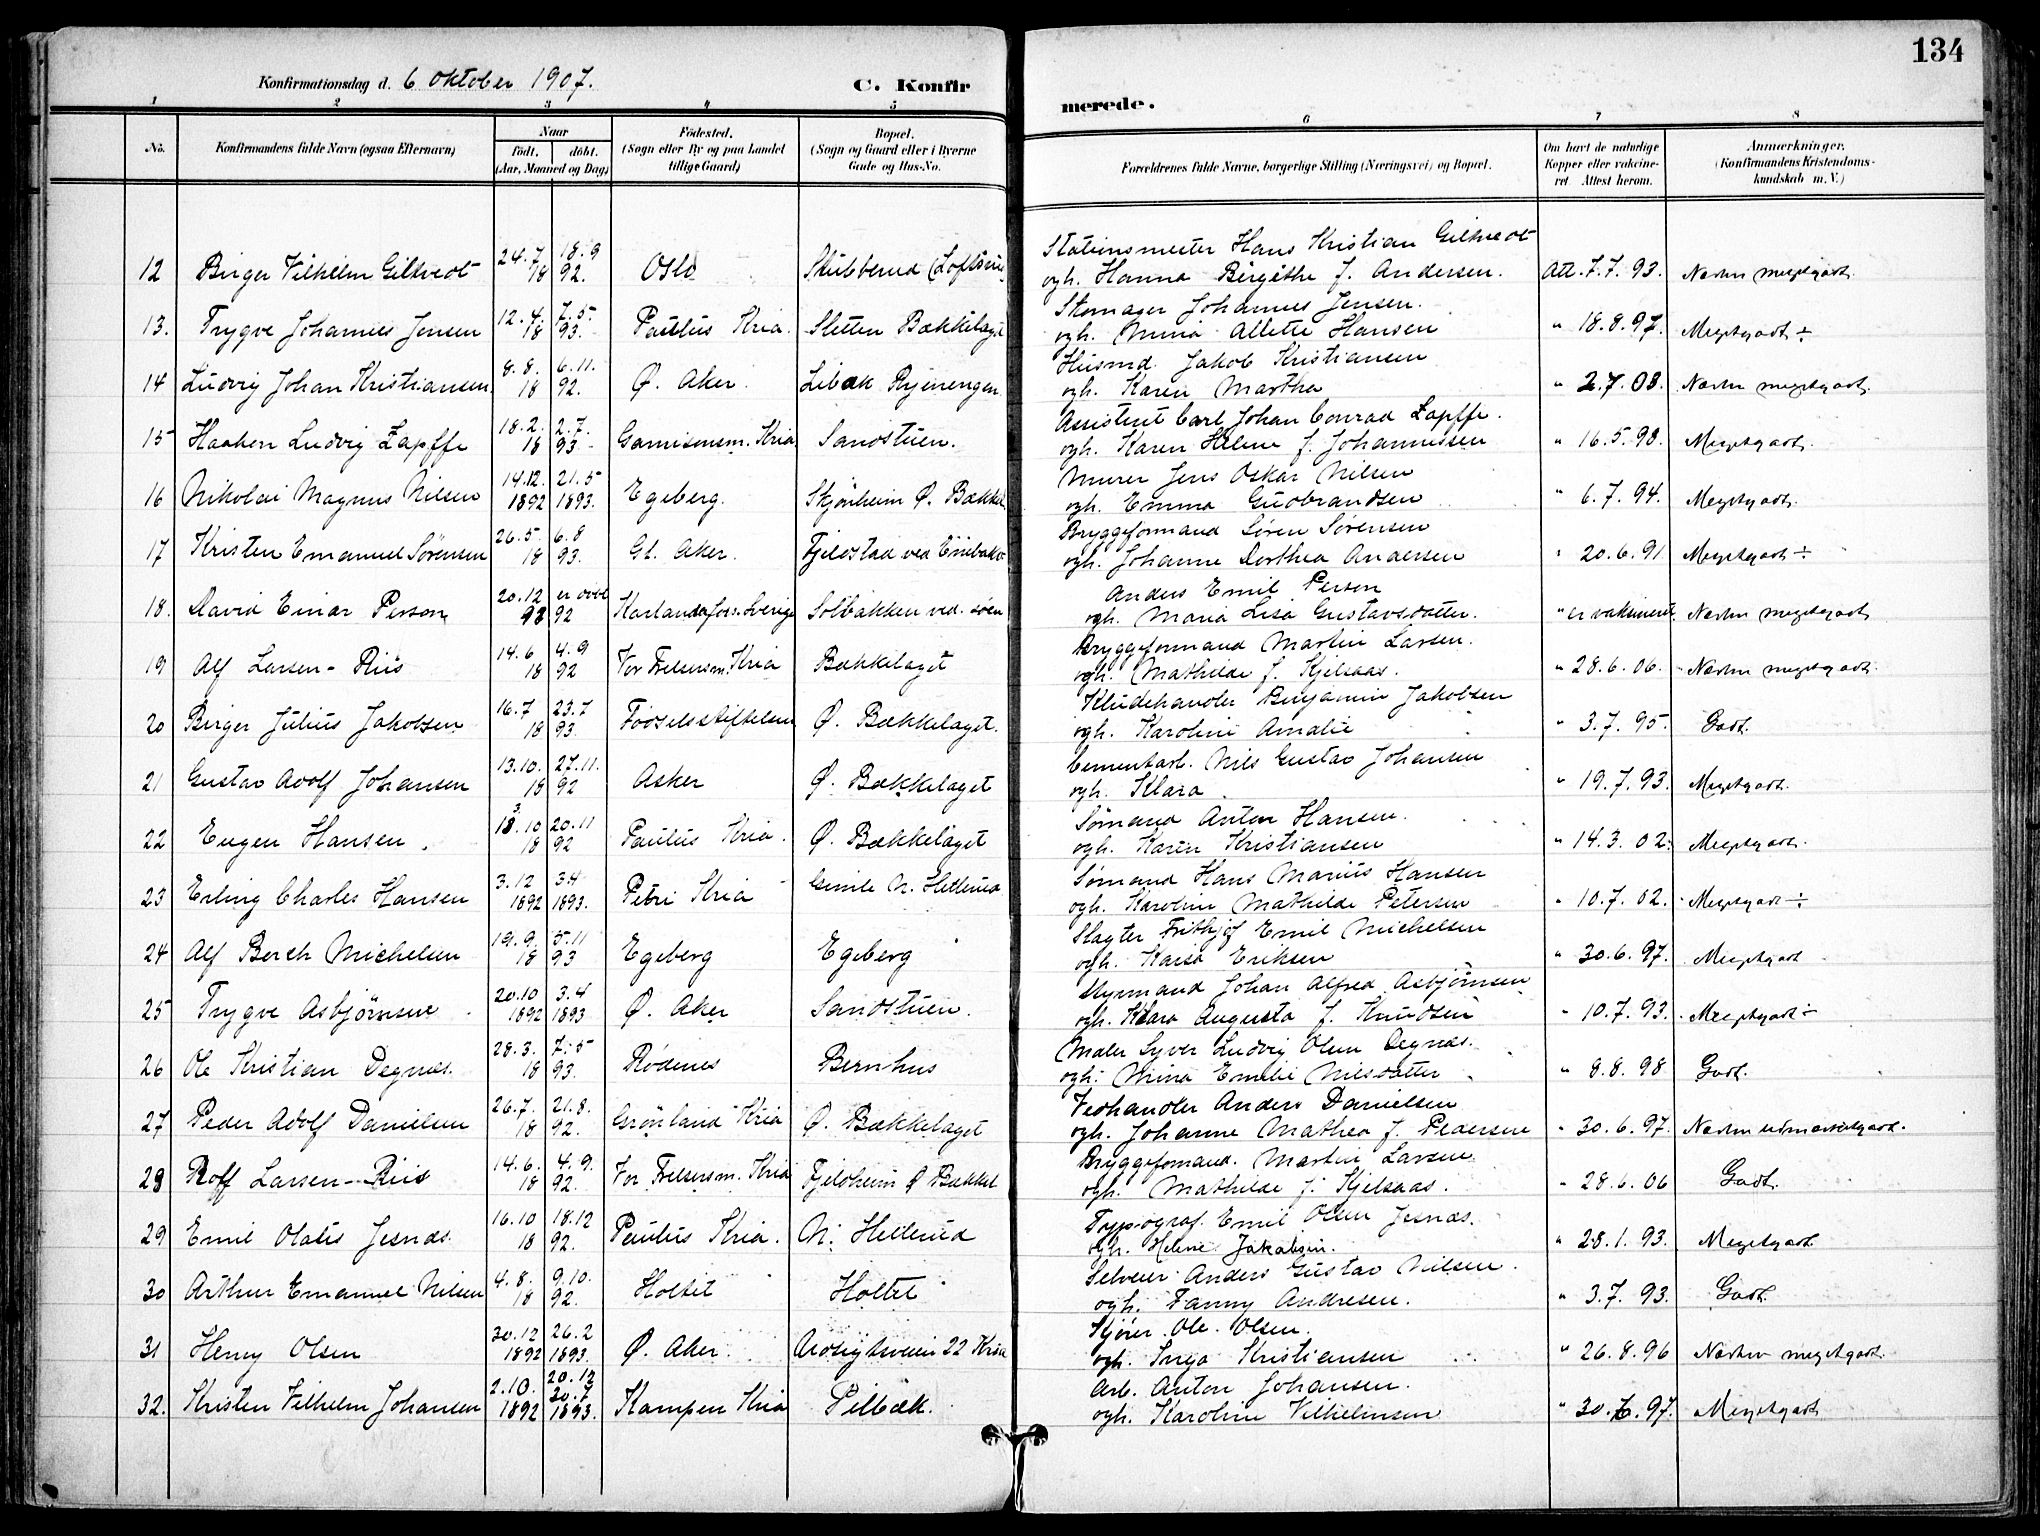 134
Konfirmationsdag d. 6 Oktober 1907. C. Konfirmerede.
1 2 3 4 5 6 7 8
No. Konfirmandens fulde Navn (ogsaa Efternavn) Naar født, døbt. (Aar, Maaned og Dag) Fødested. (Sogn eller By og paa Landet tillige Gaard) Bopæl. (Sogn og Gaard eller i Byerne Gade og Hus-No. Forældrenes fulde Navne, borgerlige Stilling (Næringsvei) og Bopæl. Om havt de naturlige Kopper eller vakcineret. Attest herom. Anmærkninger. (Konfirmandens Kristendomskundskab m. V.)
24.7 18.9 Stationsmester Hans Kristian Gilkvedt
12 Birger Vilhelm Gilkvedt 18 92. Oslo Stubberud ogh. Hanna Birgithe f. Andersen. Att. 7.7.93. Næsten megetgodt.
12.4. 7.5. Skomager Johannes Jensen.
13. Trygve Johannes Jensen 18 93. Paulus Kria. Sletten Bækkelaget ogh. Mina Allette Hansen " 18.8.97. Megetgodt ÷
8.8. 6.11. Husmd. Jakob Kristiansen
14 Ludvig Johan Kristiansen 18 92. Ø. Aker. Libæk Ryenengen ogh. Karen Marthea " 2.7.03. Næsten megetgodt.
18.2. 2.7. Assistent Carl Johan Conrad Zapffe.
15 Haaken Ludvig Zapffe 18 93. Garnisonsm. Kria Sandstuen. ogh. Karen Helene f. Johannessen " 16.5.98. Megetgodt.
14.12. 21.5 Murer Jens Oskar Nilsen
16 Nikolai Magnus Nilsen 1892 1893. Egeberg. Skjønheim Ø. Bækkel ogh. Emma Gudbrandsen " 6.7.94. Megetgodt.
26.5. 6.8 Bryggeformand Søren Sørensen
17 Kristen Emanuel Sørensen 18 93. Gl. Aker. Fjeldstad ved ogh. Johanne Dorthea Andersen " 20.6.91 Megetgodt ÷
20.12 er døbt Anders Emil Person
18. David Einar Person 92 Sverige Solbakken ved ogh. Maria Lisa Gustavsdatter. " er vaksineret. Næsten megetgodt
14.6 4.9 Bryggeformand Martin Larsen.
19 Alf Larsen-Riis 18 92 Vor Frelsersm. Kria Bækkelaget ogh. Mathilde f. Kjelsaas. " 28.6.06. Næsten megetgodt.
16.7 23.7 Kludehandler Benjamin Jakobsen
20 Birger Julius Jakobsen 18 93. Fødselsstiftelsen Ø. Bækkelaget. ogh. Karoline Amalie " 3.7.95. Godt.
13.10. 27.11. Cementarb. Nils Gustav Johansen
21 Gustav Adolf Johansen 18 92 Asker Ø. Bækkelaget ogh. Klara. " 19.7.93. Megetgodt.
3
18.10 20.11 Sømand Anton Hansen.
22 Eugen Hansen. 18 92 Paulus Kria. Ø. Bækkelaget ogh. Karen Kristiansen " 14.3.02. Megetgodt.
3.12 3.4 Sømand Hans Marius Hansen
23 Erling Charles Hansen 1892 1893. Petri Kria Gimle N. Hellerud ogh. Karoline Mathilde Petersen " 10.7.02. Megetgodt ÷
19.9. 5.11 Slagter Frithjof Emil Michelsen
24 Alf Berch Michelsen 18 93 Egeberg Egeberg ogh. Kaisa Eriksen " 30.6.97. Megetgodt
20.10 3.4 Styrmand Johan Alfred Asbjørnsen
25 Trygve Asbjørnsen 1892 1893 Ø. Aker Sandstuen. ogh. Klara Augusta f. Knudsen " 10.7.93. Megetgodt ÷
28.3. 7.5 Maler Syver Ludvig Olsen Degnæs.
26 Ole Kristian Degnæs. 18 93. Rødenes Bernhus ogh. Mina Emilie Nilsdatter " 8.8.98 Godt.
26.7. 21.8. Vedhandler Anders Danielsen
27 Peder Adolf Danielsen 18 92. Grønland Kria Ø. Bækkelaget ogh. Johanne Mathea f. Pedersen " 30.6.97. Næsten udmærketgodt.
14.6. 4.9. Bryggeformand. Martin Larsen
28 Rolf Larsen-Riis 18 92. Vor Frelsersm. Kria Fjeldheim Ø Bækkel ogh. Mathilde f. Kjelsaas. " 28.6.06 Godt.
16.10 18.12 Typograf. Emil Olsen Jesnæs.
29 Emil Olaus Jesnæs. 18 92. Paulus Kria. N. Hellerud ogh. Helene Jakobsen. " 28.1.93. Megetgodt
4.8. 9.10. Selveier Anders Gustav Nilsen.
30 Arthur Emanuel Nilsen 18 92. Holtet Holtet ogh. Fanny Andresen. " 3.7.93. Godt.
30.12 26.2 Kjører. Ole Olsen.
31 Henry Olsen 1892 1893. Ø. Aker. 22 Kria ogh. Inga Kristiansen " 26.8.96 Næsten megetgodt.
2.10. 20.12 30.7 Arb. Anton Johansen.
32. Kristen Vilhelm Johansen 1892 1893. Kampen Kria Pilbæk. ogh. Karoline Vilhelmsen " 30.6.97. Megetgodt